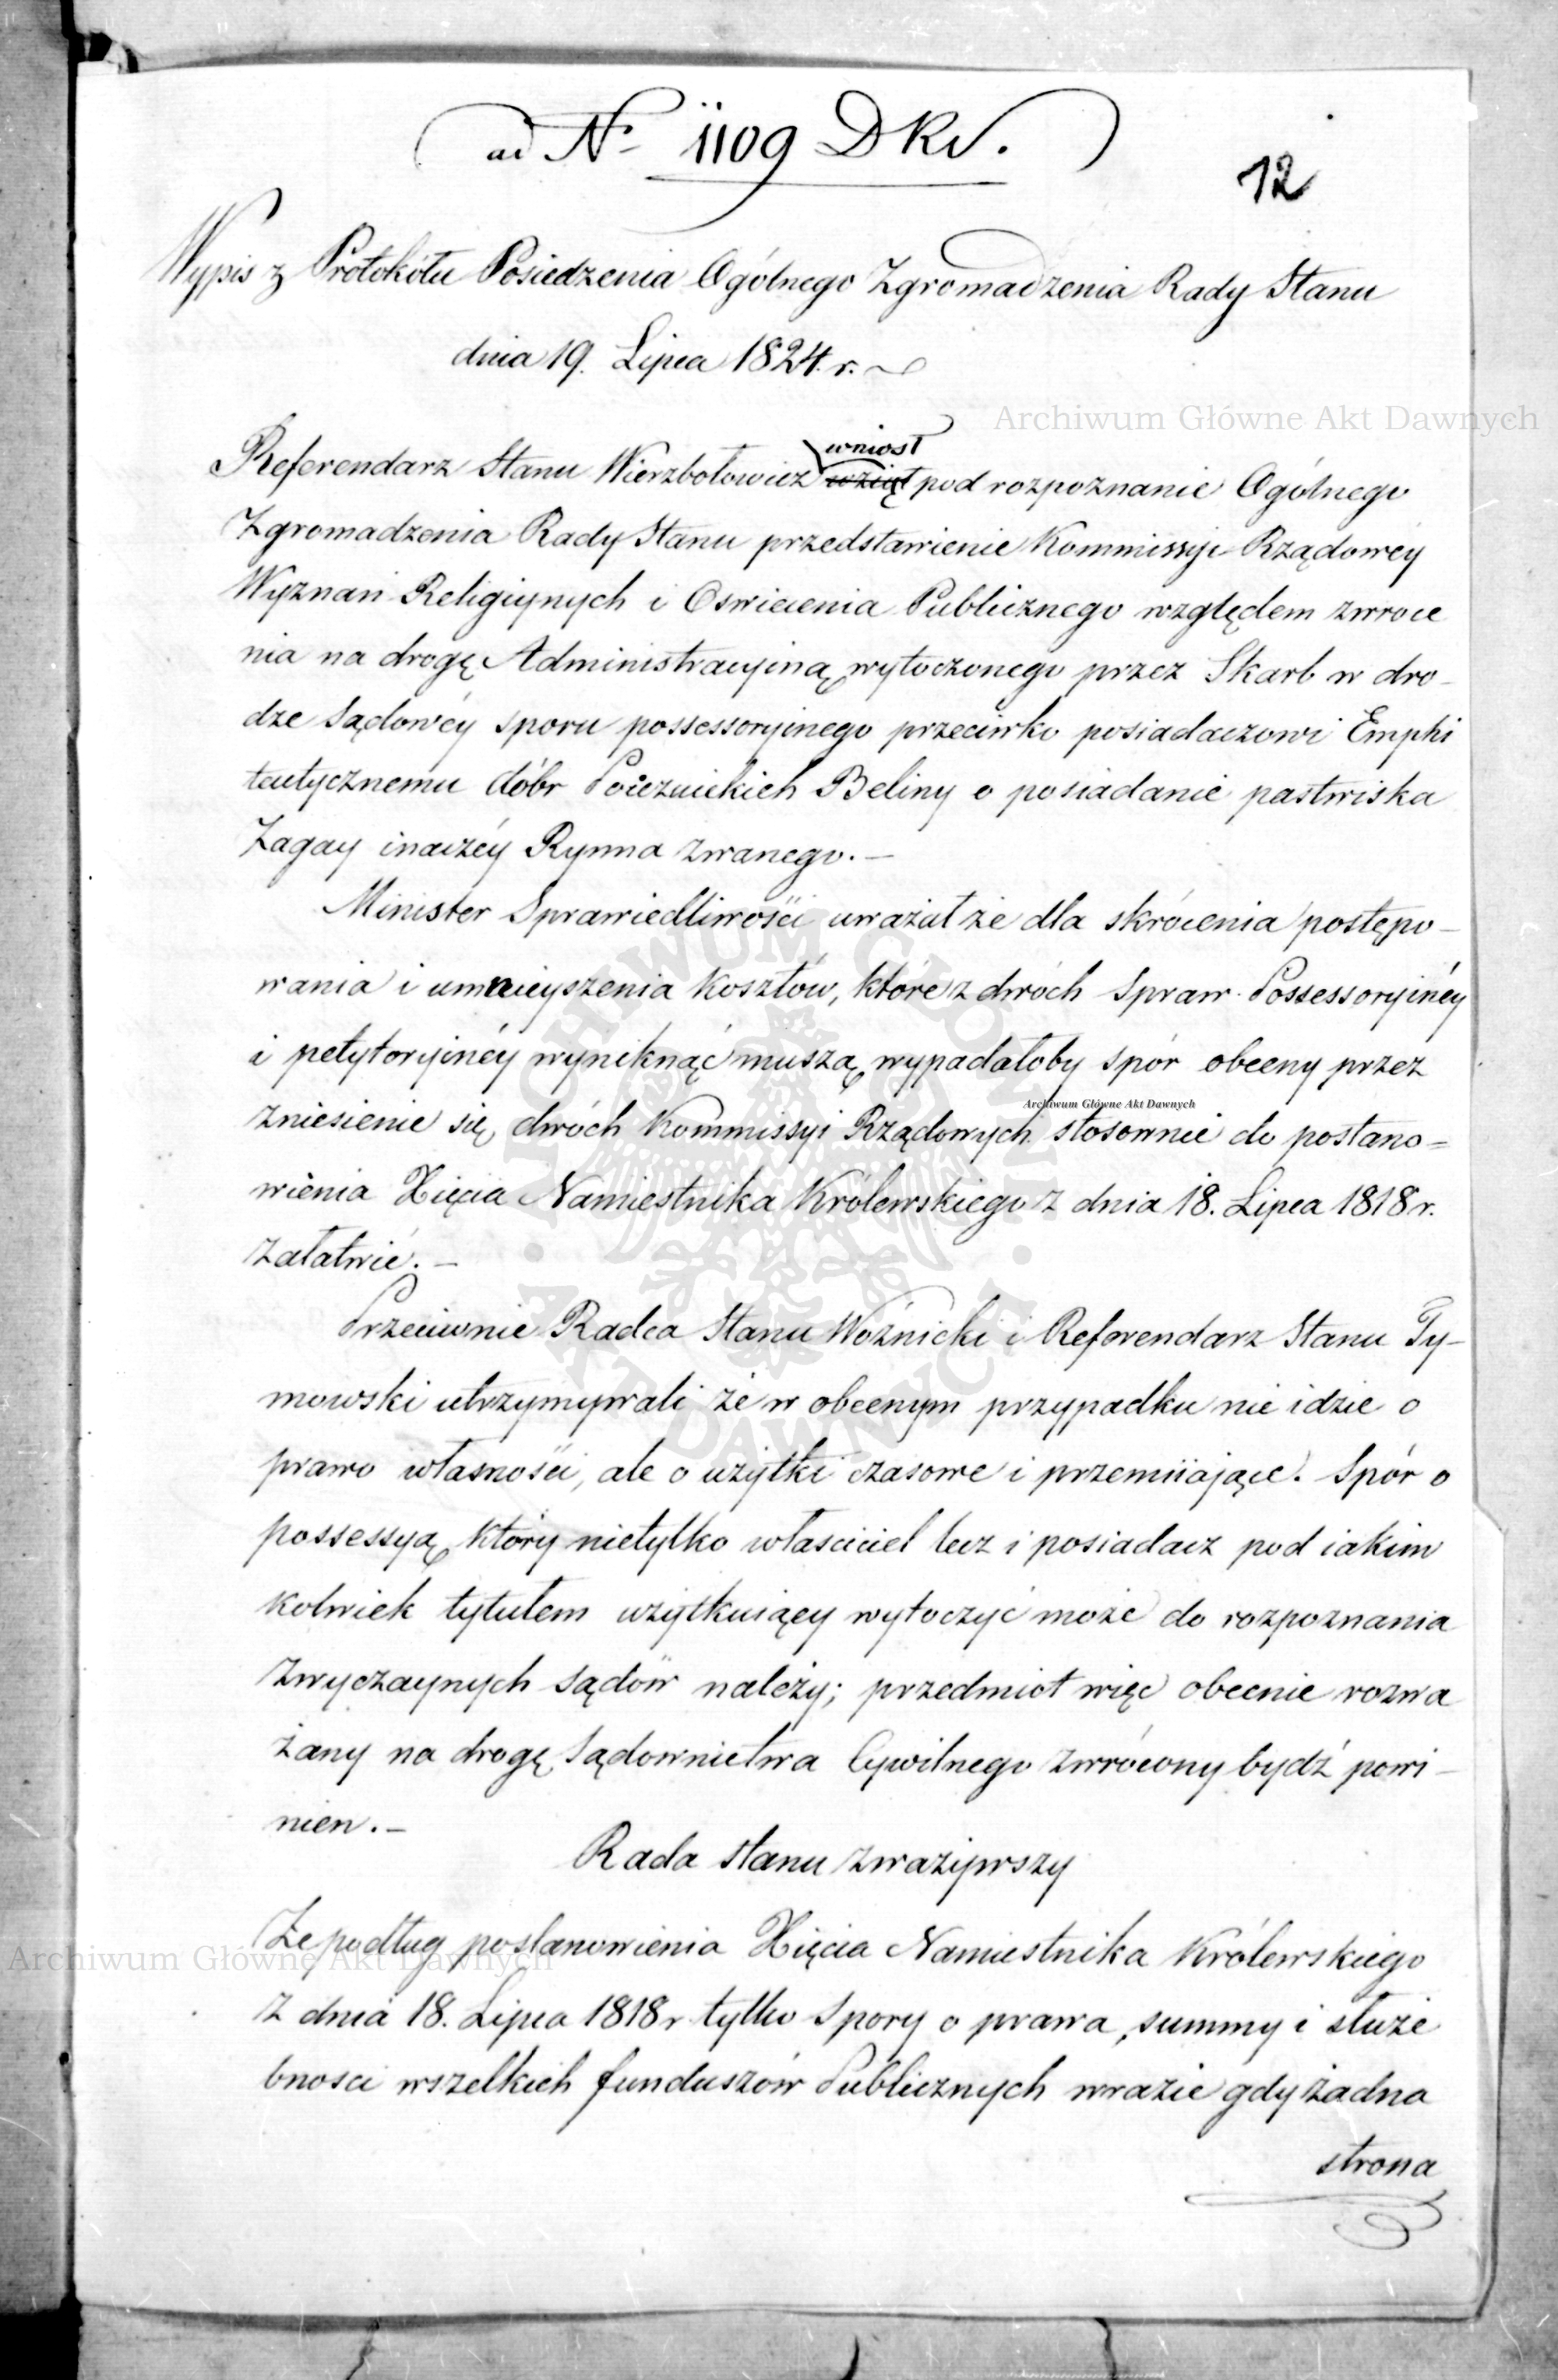 ad No 1109 DKW.
12
Wypis z Protokółu Posiedzenia Ogólnego Zgromadzenia Rady Stanu
dnia 19. Lipca 1824. r.
Archiwum Główne Akt Dawnych
wniosł
Referendarz Stanu Wierzbołowicz wziął pod rozpoznanie Ogólnego
Zgromadzenia Rady Stanu przedstawienie Kommissyi Rządowéy
Wyznań Religiynych i Oswiecenia Publicznego względem zwroce
nia na drogę Administracyiną wytoczonego przez Skarb w dro-
dze Sądowéy sporu possessoryinego przeciwko posiadaczowi Emphi
teutycznemu dóbr Beliny o posiadanie pastwiska
Zagay inaczéy Rynna zwanego. —
Minister Sprawiedliwości uważał że dla skrócenia postępo-
wania i umnieyszenia kosztów, które z dwóch Spraw Possessoryinéy
i petytoryinéy wyniknąć muszą, wypadałoby spór obecny przez
Archiwum Główne Akt Dawnych
zniesienie się dwóch Kommissyi Rządowych stosownie do postano=
wienia Xięcia Namiestnika Królewskiego z dnia 18. Lipca 1818 r.
załatwić. —
Przeciwnie Radca Stanu Woźnicki i Referendarz Stanu Ty-
mowski utrzymywali że w obecnym przypadku nie idzie o
prawo własności, ale o użytki czasowe i przemiiające. Spór o
possessyą, który nietylko własciciel lecz i posiadacz pod iakim
kolwiek tytułem użytkuiący wytoczyć może do rozpoznania
zwyczaynych sądów należy; przedmiot więc obecnie rozwa
żany na drogę Sądownictwa Cywilnego zwrócony bydź powi-
nien. —
Rada Stanu zważywszy
Że podług postanowienia Xięcia Namiestnika Królewskiego
Archiwum Główne Akt Dawnych
z dnia 18. Lipca 1818 r tylko Spory o prawa, summy i służe
bnosci wszelkich funduszów Publicznych wrazie gdy żadna
strona
ARCHIWUM GŁÓWNE · AKT DAWNYCH ·